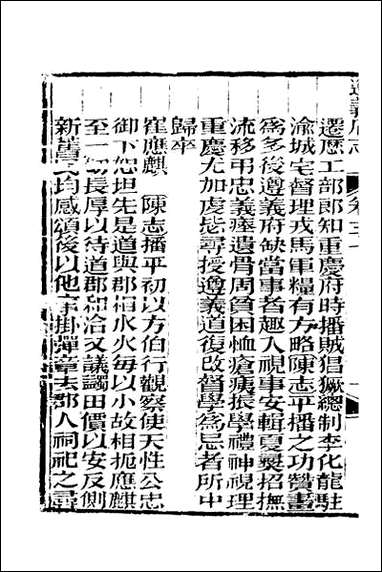 遵義府志　卷三十
遷歷工部郎知重慶府時播賊猖獗總制李化龍駐
渝城宅督理戎馬軍糧有方略陳志平播之功贊畫
為多後遵義府缺當事者趣人視事安輯夏爕招撫
流移弔忠義瘞遺骨周貧困恤瘡痍振學禮神視理
重慶尤加虔啙尋授遵義道復改督學為忌者所中
歸卒
寇應麒　陳志播平初以方伯行觀察使天性公忠
御下恕坦先是道與郡相水火每以小故相扼應麒
至一切長厚以待道郡和洽又議蠲田價以安反側
新舊民均感頌後以他事掛彈章去郡人祠祀之尋